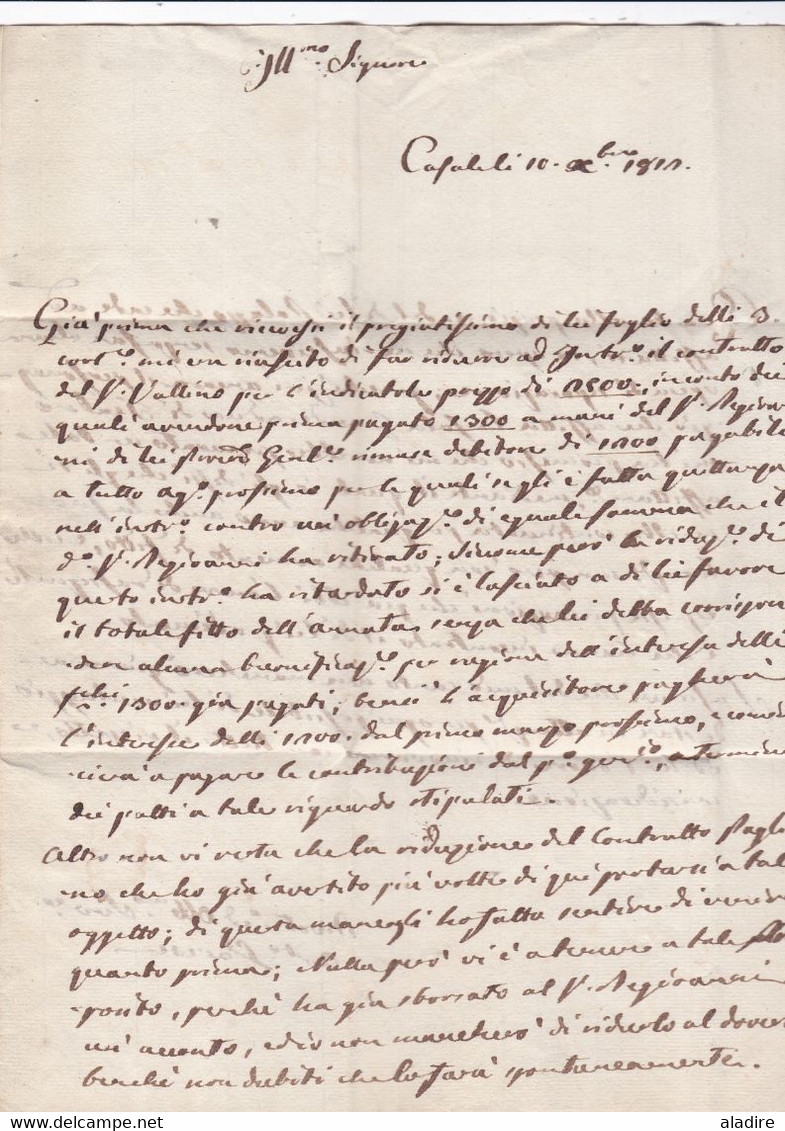 Ill.mo Signore
Casale li 10. Xbre 1811.
Già prima che ricevessi il pregiatissimo di lei foglio delli 3.
corr.e mi era riuscito di far ridurre ad Instr.o il contratto
del S.r Vallino per l'indicatole prezzo di 2500., in conto dei
quali avendone prima pagato 1300 a mani del S.r Regiovan
ni di lei rimase debitore di 1200 pagabili
a tutto ag.o prossimo per le quali se gli è fatta quittanza
nell'instr.o contro un' obligaz.e di eguale somma che il
d.o S.r Regiovanni ha ritirato; siccome però la riduz.e di
questo instr.o ha ritardato si è lasciato a di lei favore
il totale fitto dell'annata senza che lei debba corrispon
dere alcuna buonificaz.e per ragione dell'interesse delli
f.chi 1300. già pagati, bensì l'acquisitore pagherà
l'interesse delli 1200. dal primo marzo prossimo, e comin
cierà a pagare le contribuzioni dal p.o gen.o, a termini
dei patti a tale riguardo stipulati.
Altro non vi resta che la riduzione del Contratto Pagli
no che ho già avertito più volte di quì portarsi a tal
oggetto; di questa mane gli ho fatto sentire di venire
quanto prima; Nulla però vi è a temere a tale pro
posito, perchè ha già sborsato al S.r Regiovanni
un' acconto, ed io non mancherò di ridurlo al dovere
benchè non dubiti che lo farà spontaneamente.
aladire